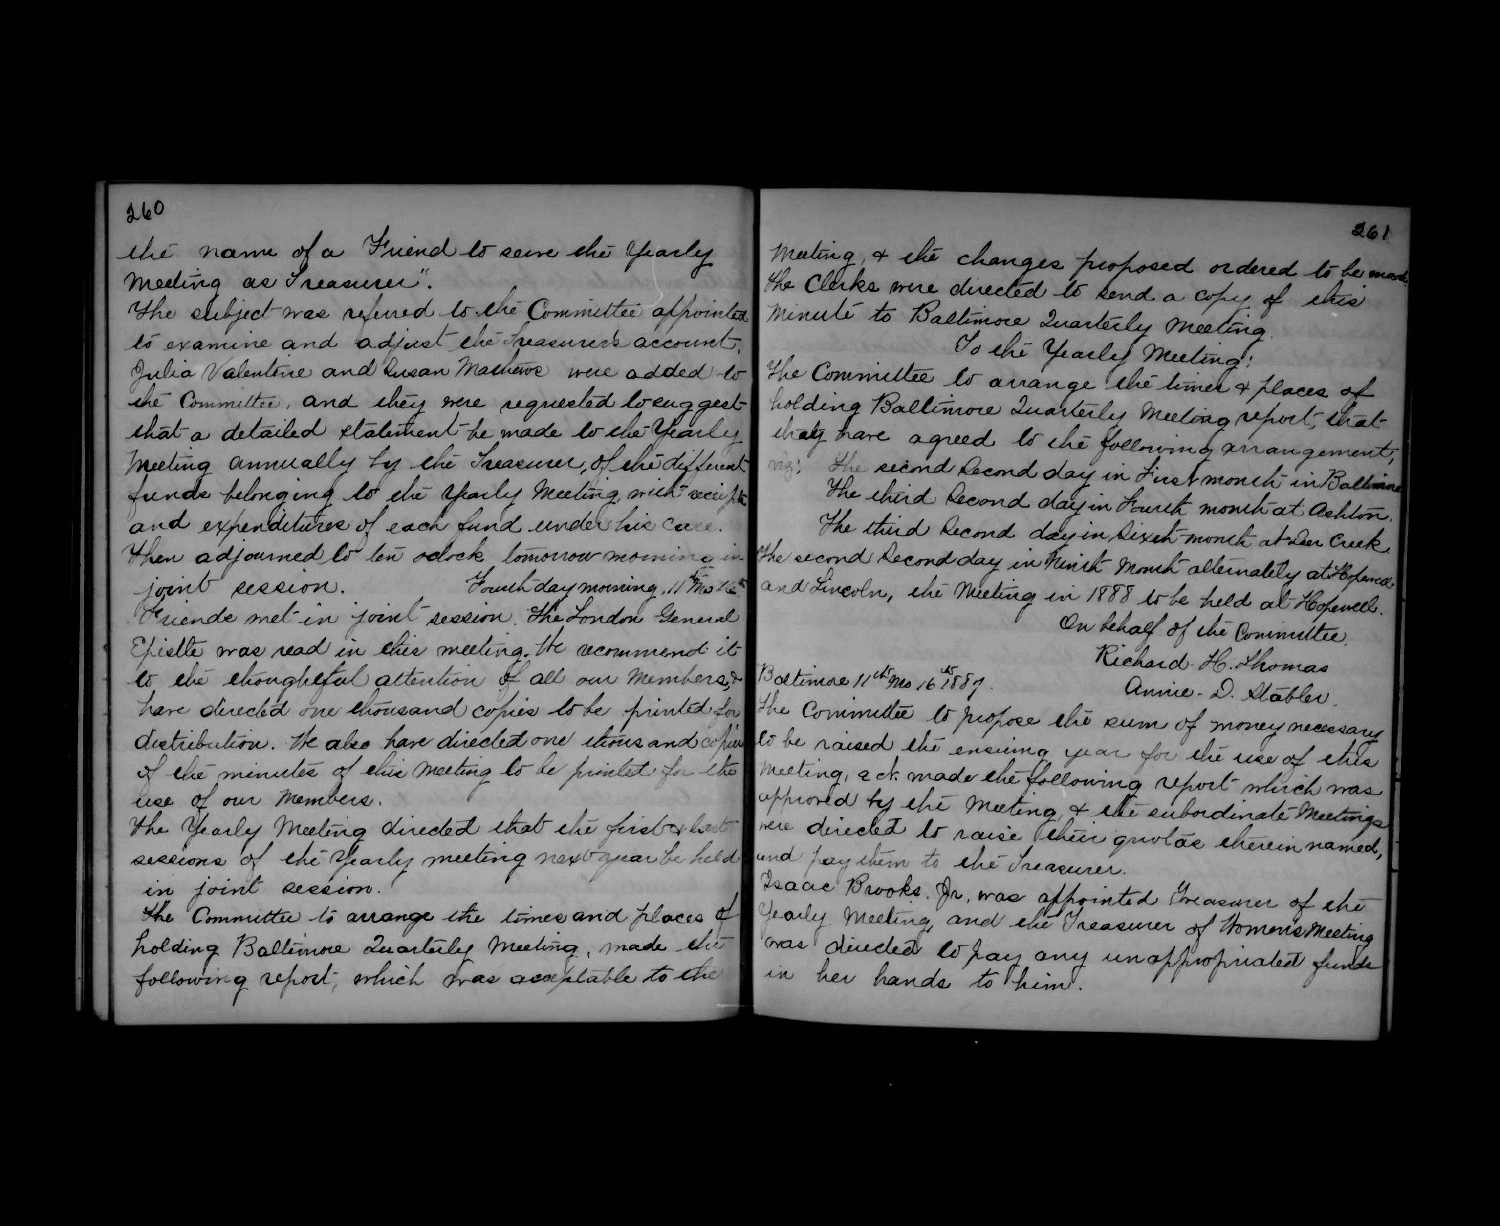 260
the name of a Friend to serve the Yearly
Meeting as Treasurer".
The subject was referred to the Committee appointed
to examine and adjust the Treasurer's account.
Julia Valentine and Susan Mathews were added to
the Committee, and they were requested to suggest
that a detailed statement be made to the Yearly
Meeting annually by the Treasurer, of the different
funds belonging to the Yearly Meeting, with receipts
and expenditures of each fund under his care.
Then adjourned to ten oclock tomorrow morning in
joint session. Fourth day morning, 11th Mo 16th
Friends met in joint session. The London General
Epistle was read in this meeting. We recommend it
to the thoughtful attention of all our Members, &
have directed one thousand copies to be printed for
distribution. We also have directed one thousand copies
of the minutes of this Meeting to be printed for the
use of our Members.
The Yearly Meeting directed that the first & last
sessions of the Yearly meeting next year be held
in joint session.
The Committee to arrange the times and places of
holding Baltimore Quarterly Meeting, made the
following report, which was acceptable to the
261
Meeting, & the changes proposed ordered to be made
the Clerks were directed to send a copy of this
Minute to Baltimore Quarterly Meeting.
To the Yearly Meeting:
The Committee to arrange the times & places of
holding Baltimore Quarterly Meeting report, that
they have agreed to the following arrangement,
viz: The second Second day in First month in Baltimore
The third Second day in Fourth month at Ashton.
The third Second day in Sixth month at Deer Creek
The second Second day in Ninth Month alternately at Hopewell
and Lincoln, the Meeting in 1888 to be held at Hopewell.
On behalf of the Committee,
Richard H. Thomas
Baltimore 11th Mo 16th 1887. Annie D. Stabler.
The Committee to propose the sum of money necessary
to be raised the ensuing year for the use of this
Meeting, &c. made the following report which was
approved by the Meeting, & the subordinate Meetings
were directed to raise their quotas therein named,
and pay them to the Treasurer.
Isaac Brooks, Jr, was appointed Treasurer of the
Yearly Meeting, and the Treasurer of Women's Meeting
was directed to pay any unappropriated funds
in her hands to him.